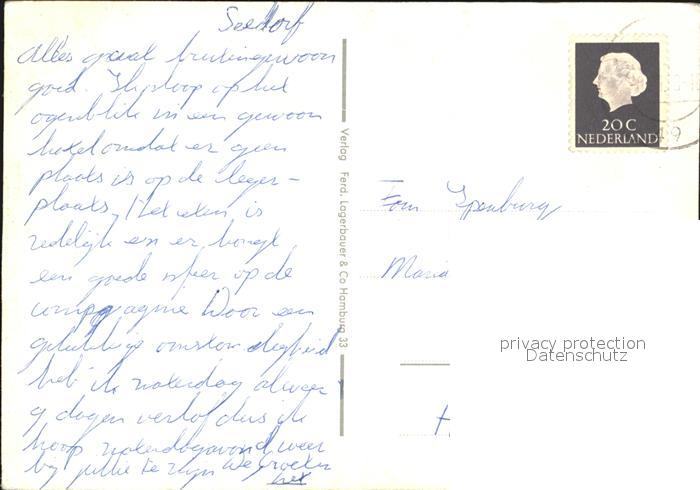 Seedorf
Alles gaat buitengewoon
goed. Ik slaap op het
ogenblik in een gewoon
hotel omdat er geen
plaats is op de leger-
plaats. Het eten is
redelijk en er hangt
een goede sfeer op de
compagnie Door een
gelukkige omstandigheid
heb ik zaterdag alweer
9 dagen verlof dus ik
hoop zaterdagavond weer
bij jullie te zijn de groeten
Verlag Ferd. Lagerbauer & Co Hamburg 33
20 C
NEDERLAND
Fam Ypenburg
Maria
H
privacy protection
Datenschutz